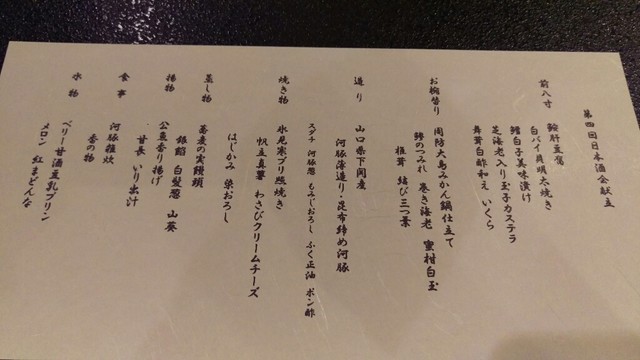 第四回日本酒会献立
前八寸
鮟肝豆腐
白バイ貝明太焼き
鱈白子美味漬け
芝海老入り玉子カステラ
舞茸白酢和え いくら
お椀替り
周防大島みかん鍋仕立て
鰺のつみれ 巻き海老 蜜柑白玉
椎茸 結び三つ葉
造り
山口県下関産
河豚薄造り・昆布締め河豚
スダチ 河豚葱 もみじおろし ふく正油 ポン酢
焼き物
氷見寒ブリ照焼き
帆立真薯 わさびクリームチーズ
はじかみ 染おろし
蒸し物
蕎麦の実饅頭
銀餡 白髪葱 山葵
揚物
公魚香り揚げ
甘長 いり出汁
食事
河豚雑炊
香の物
水物
ベリー甘酒豆乳プリン
メロン 紅まどんな